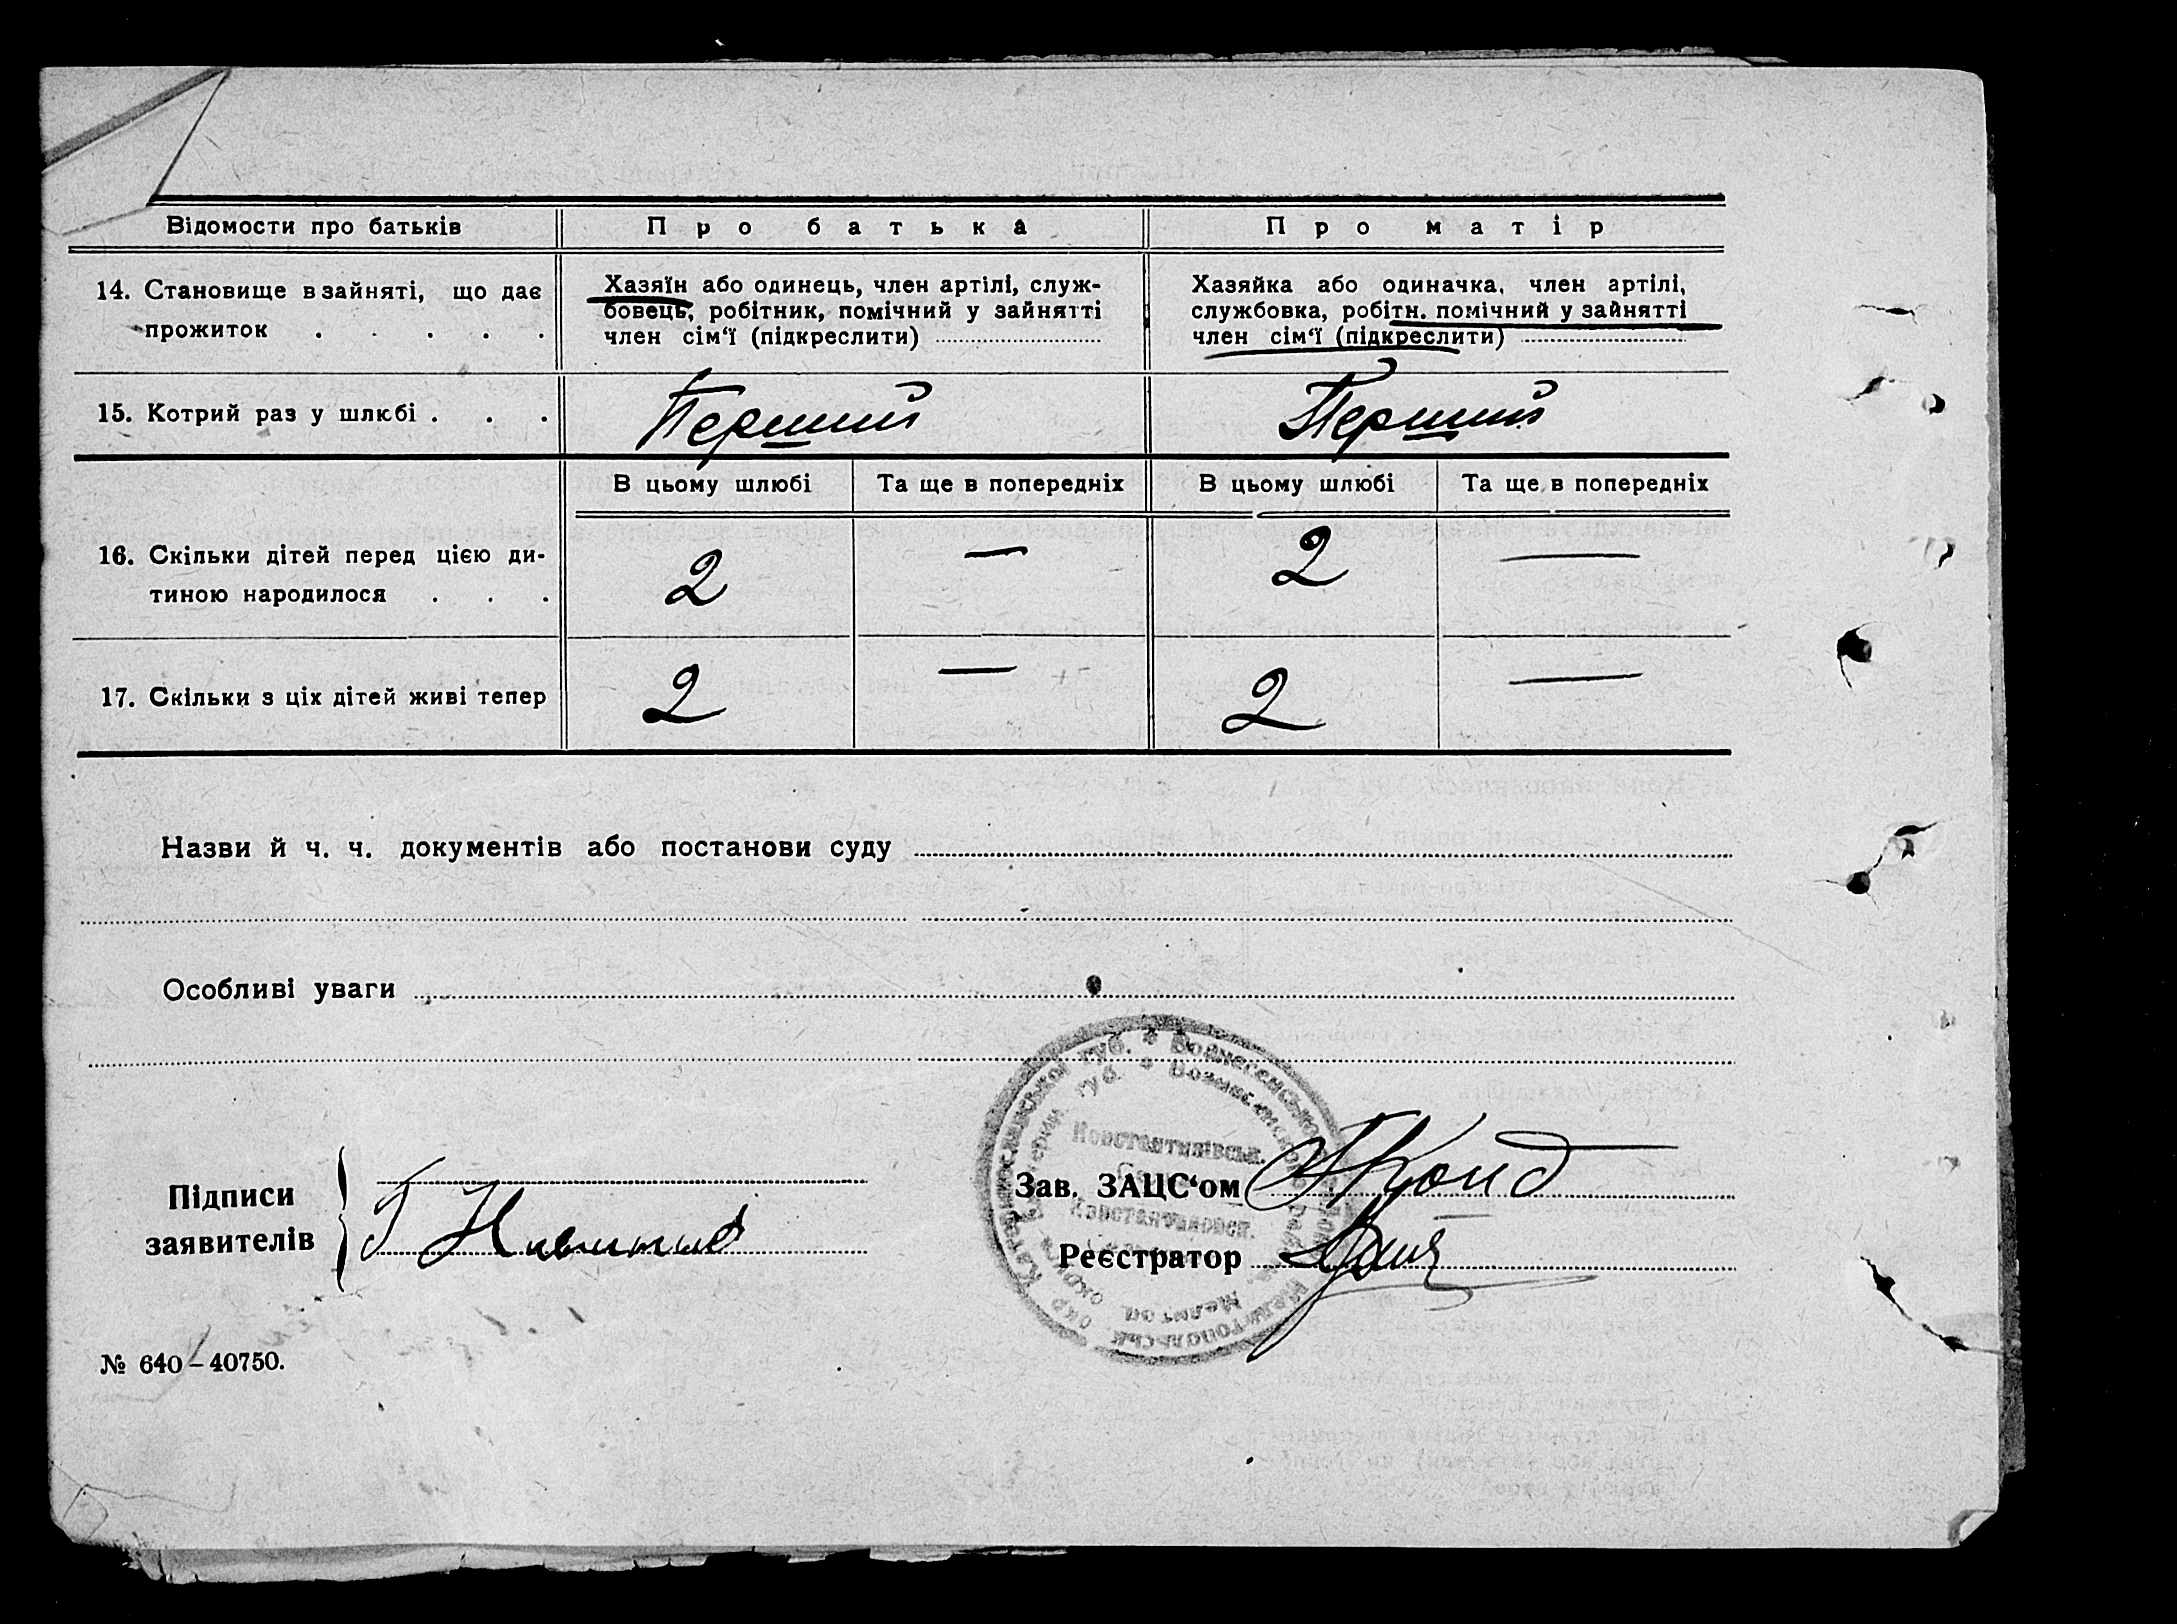 Відомости про батьків
Про батька
Про матір
14. Становище в зайняті, що дає
прожиток . . . . .
Хазяїн або одинець, член артілі, служ-
бовець, робітник, помічний у зайнятті
член сім‘ї (підкреслити)
Хазяйка або одиначка, член артілі,
службовка, робітн. помічний у зайнятті
член сім‘ї (підкреслити)
15. Котрий раз у шлюбі . . .
Перший
Перший
В цьому шлюбі
Та ще в попередніх
В цьому шлюбі
Та ще в попередніх
16. Скільки дітей перед цією ди-
тиною народилося . . .
2
—
2
—
17. Скільки з ціх дітей живі тепер
2
—
2
—
Назви й ч. ч. документів або постанови суду
Особливі уваги
Підписи
заявителів
Зав. ЗАЦС‘ом
Реєстратор
Катеринославської губ. * Вознесенської
Мелітопольськ. окр.
Константинівськ.
Константиновск.
№ 640—40750.